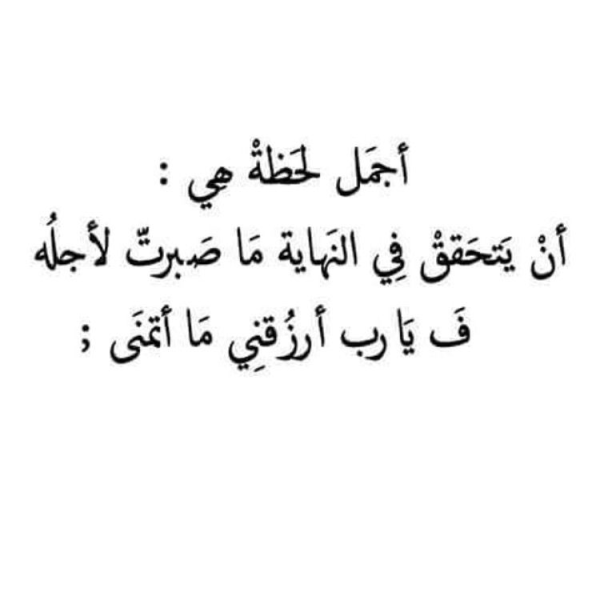 أجمَل لحَظةْ هِي :
أنْ يَتحَققْ فِي النهَاية مَا صَبرتّ لأجلُه
فَ يَا رب أرزُقنِي مَا أتمنَى ;